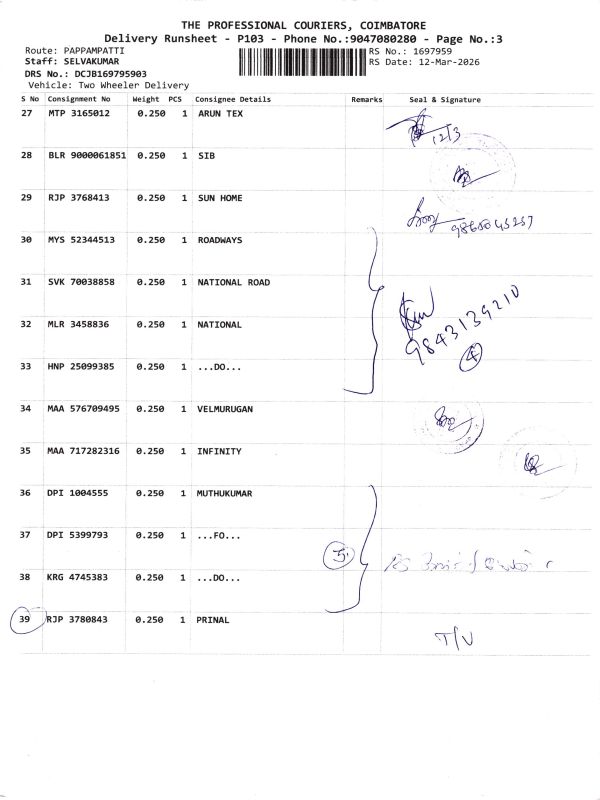 THE PROFESSIONAL COURIERS, COIMBATORE
Delivery Runsheet - P103 - Phone No.:9047080280 - Page No.:3
Route: PAPPAMPATTI
RS No.: 1697959
Staff: SELVAKUMAR
RS Date: 12-Mar-2026
DRS No.: DCJB169795903
Vehicle: Two Wheeler Delivery
S No Consignment No Weight PCS Consignee Details Remarks Seal & Signature
27 MTP 3165012 0.250 1 ARUN TEX
12/3
28 BLR 9000061851 0.250 1 SIB
29 RJP 3768413 0.250 1 SUN HOME
30 MYS 52344513 0.250 1 ROADWAYS
31 SVK 70038858 0.250 1 NATIONAL ROAD
32 MLR 3458836 0.250 1 NATIONAL
9843139210
4
33 HNP 25099385 0.250 1 ...DO...
34 MAA 576709495 0.250 1 VELMURUGAN
35 MAA 717282316 0.250 1 INFINITY
36 DPI 1004555 0.250 1 MUTHUKUMAR
37 DPI 5399793 0.250 1 ...FO...
38 KRG 4745383 0.250 1 ...DO...
39 RJP 3780843 0.250 1 PRINAL
T/V